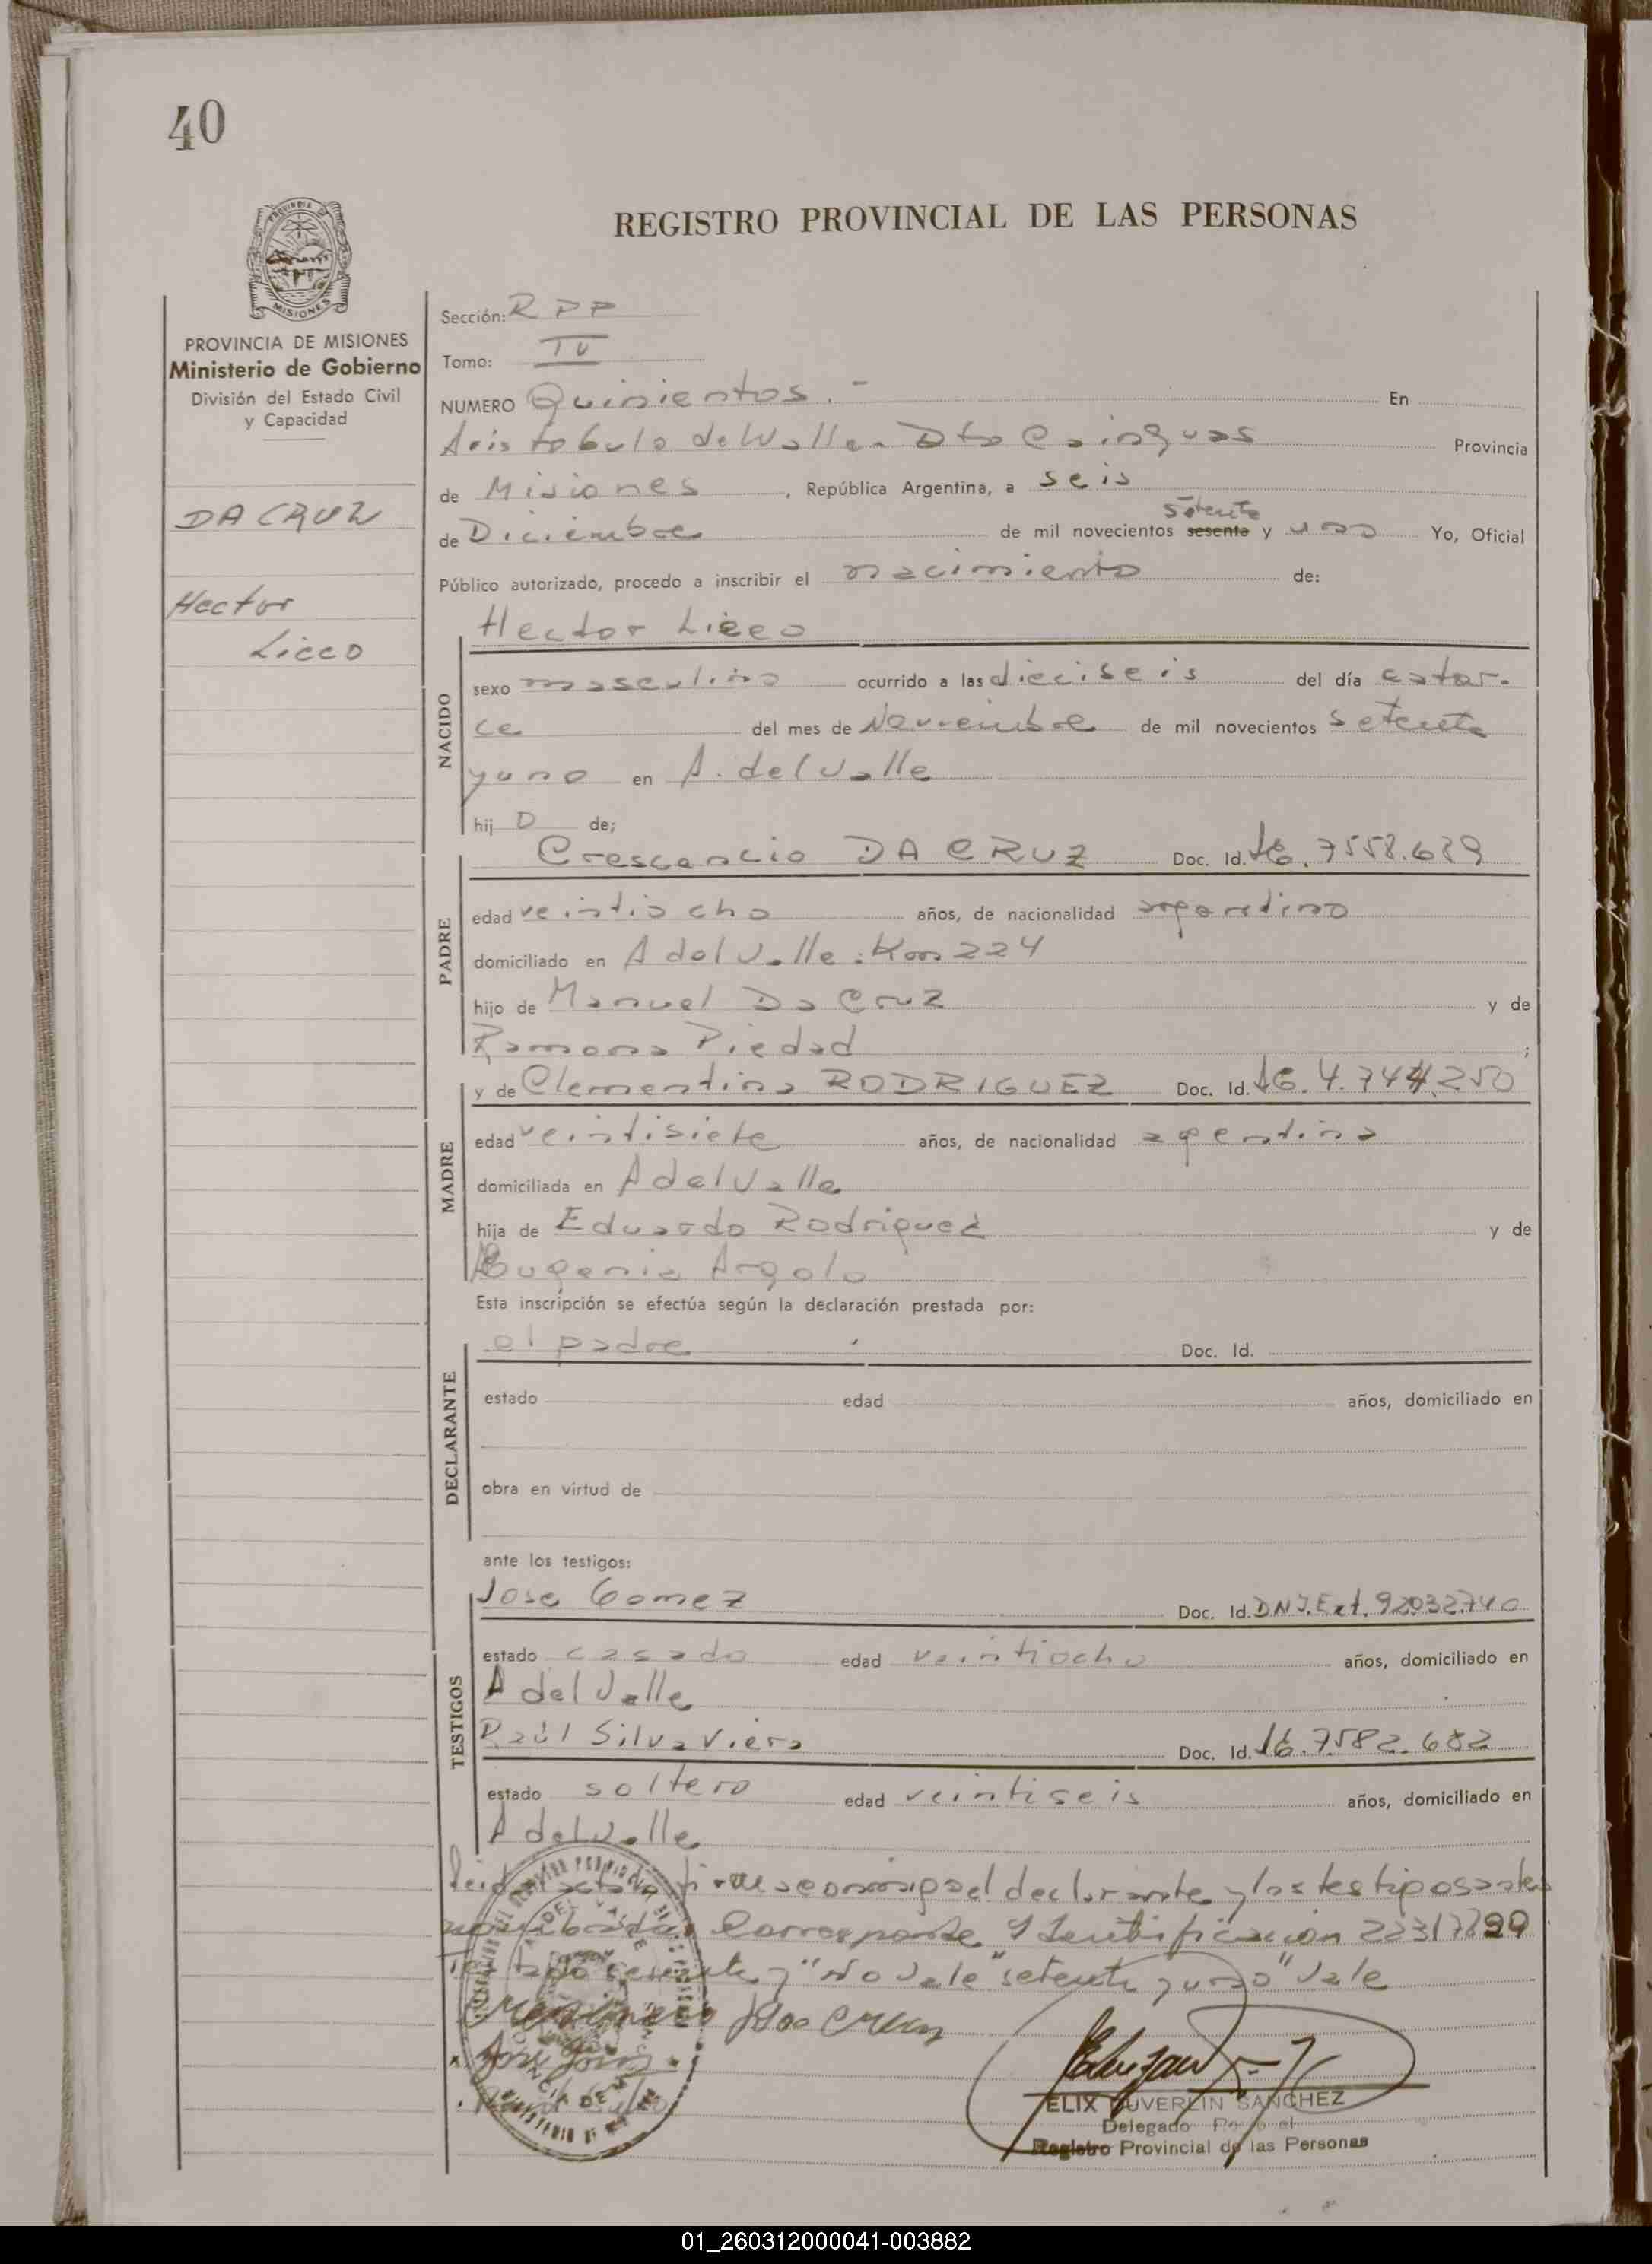 40
REGISTRO PROVINCIAL DE LAS PERSONAS
PROVINCIA DE MISIONES
PROVINCIA DE MISIONES
Ministerio de Gobierno
División del Estado Civil
y Capacidad
DA CRUZ
Hector
Liceo
Sección: R P P
Tomo: IV
NUMERO Quinientos.- En
Aristobulo del Valle - Dto Cainguas Provincia
de Misiones, República Argentina, a seis
setenta
de Diciembre de mil novecientos sesenta y uno Yo, Oficial
Público autorizado, procedo a inscribir el nacimiento de:
NACIDO
Hector Liceo
sexo masculino ocurrido a las dieciseis del día cator-
ce del mes de Noviembre de mil novecientos setenta
y uno en A. del Valle
hij o de;
PADRE
Crescencio DA CRUZ Doc. Id. 7558.689
edad veintiocho años, de nacionalidad argentino
domiciliado en A del Valle: Km 224
hijo de Manuel Da Cruz y de
Ramona Piedad ;
MADRE
y de Clementina RODRIGUEZ Doc. Id. 4.744.250
edad veintisiete años, de nacionalidad argentina
domiciliada en A del Valle
hija de Eduardo Rodriguez y de
Eugenia Argolo
Esta inscripción se efectúa según la declaración prestada por:
DECLARANTE
el padre Doc. Id.
estado edad años, domiciliado en
obra en virtud de
ante los testigos:
TESTIGOS
Jose Gomez Doc. Id. DNI.Ext. 92032740
estado casado edad veintiocho años, domiciliado en
A del Valle
Raúl Silva Viera Doc. Id. 7582.682
estado soltero edad veintiseis años, domiciliado en
A del Valle
Leida el acta firma conmigo el declarante y los testigos antes
nombrados Corresponde Identificación 22317899
Testado sesenta y "No Vale" setenta y uno" Vale
Da Cruz
ELIX DUVERLIN SANCHEZ
Delegado
Registro Provincial de las Personas
01_260312000041-003882